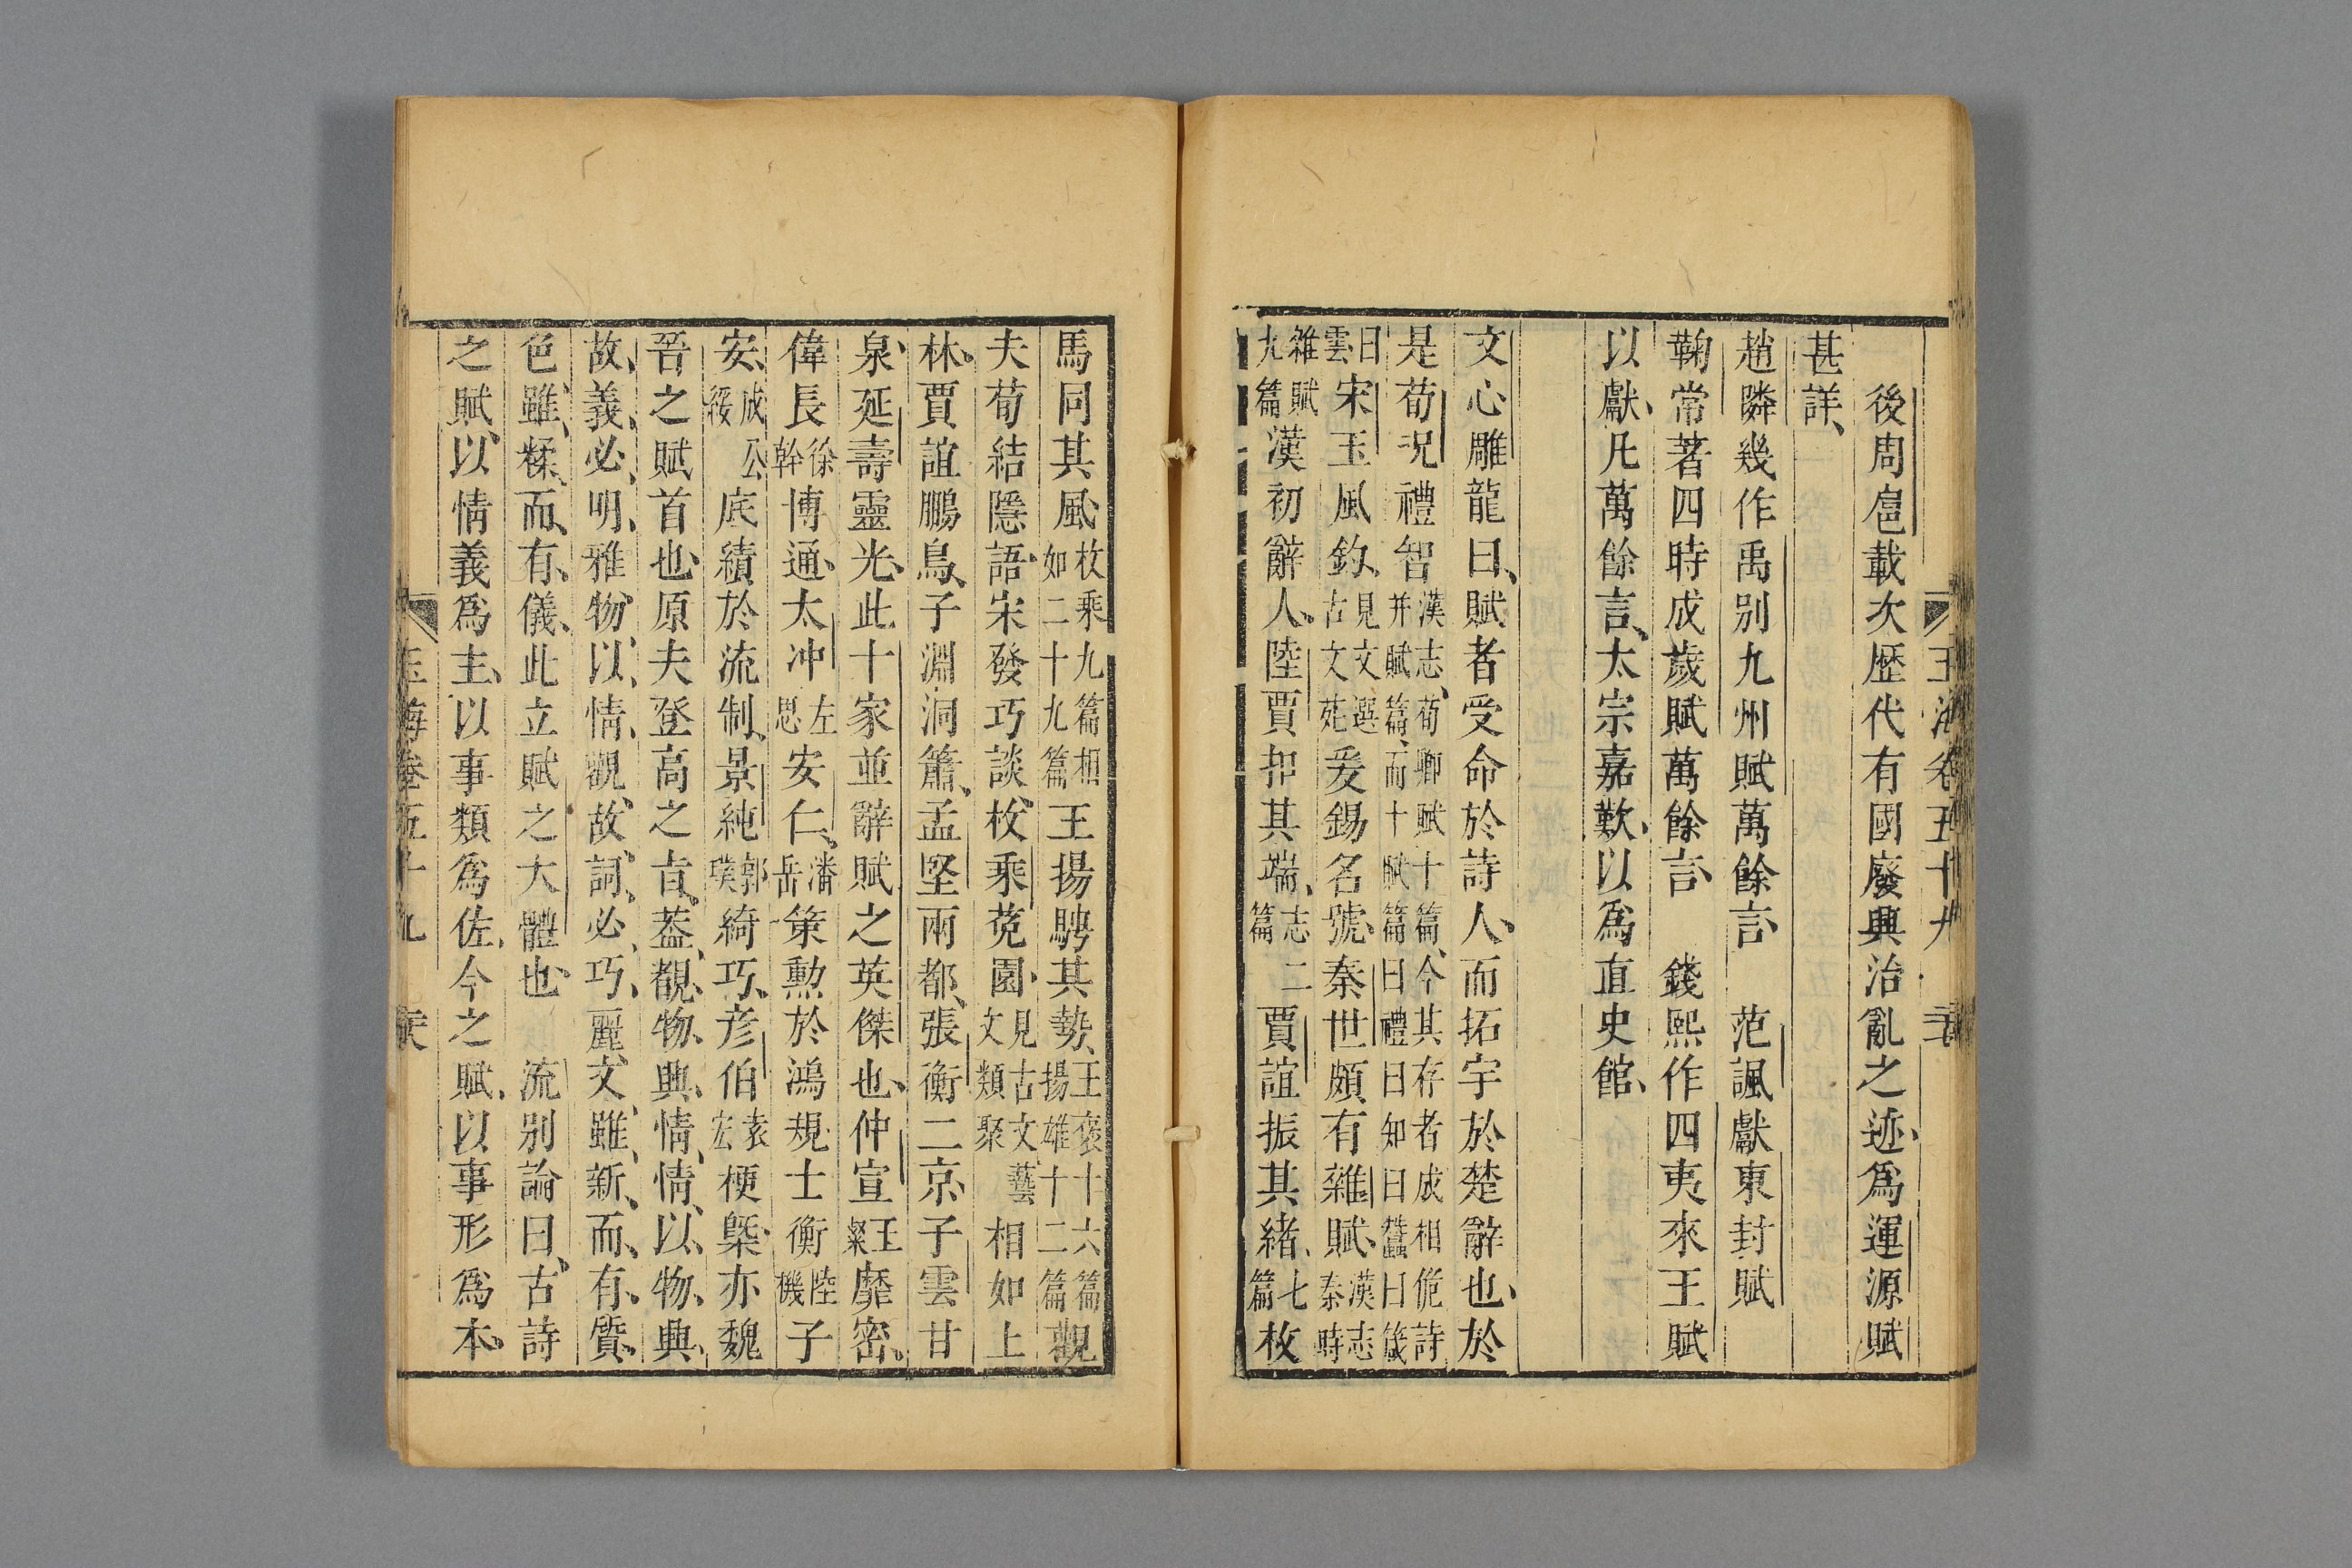 玉海卷五十九
後周扈載次歷代有國廢興治亂之迹爲運源賦
甚詳
趙隣幾作禹別九州賦萬餘言 范諷獻東封賦
鞠常著四時成歲賦萬餘言 錢熙作四夷來王賦
以獻凡萬餘言太宗嘉歎以爲直史館
文心雕龍曰賦者受命於詩人而拓宇於楚辭也於
是荀況禮智漢志荀卿賦十篇今其存者成相佹詩并賦篇而十賦篇曰禮曰知曰蠶曰箴
曰雲宋玉風釣見文選古文苑爰錫名號秦世頗有雜賦漢志秦時
雜賦九篇漢初辭人陸賈扣其端志二篇賈誼振其緒七篇枚
馬同其風枚乘九篇相如二十九篇王揚騁其勢王褒十六篇揚雄十二篇觀
夫荀結隱語宋發巧談枚乘菟園見古文藝文類聚相如上
林賈誼鵬鳥子淵洞簫孟堅兩都張衡二京子雲甘
泉延壽靈光此十家並辭賦之英傑也仲宣王粲靡密
偉長徐幹博通太冲左思安仁潘岳策勲於鴻規士衡陸機子
安成公綏底績於流制景純郭璞綺巧彦伯袁宏梗槩亦魏
晉之賦首也原夫登高之旨葢覩物興情情以物興
故義必明雅物以情觀故詞必巧麗文雖新而有質
色雖糅而有儀此立賦之大體也 流别論曰古詩
之賦以情義爲主以事類爲佐今之賦以事形爲本
玉海卷五十九